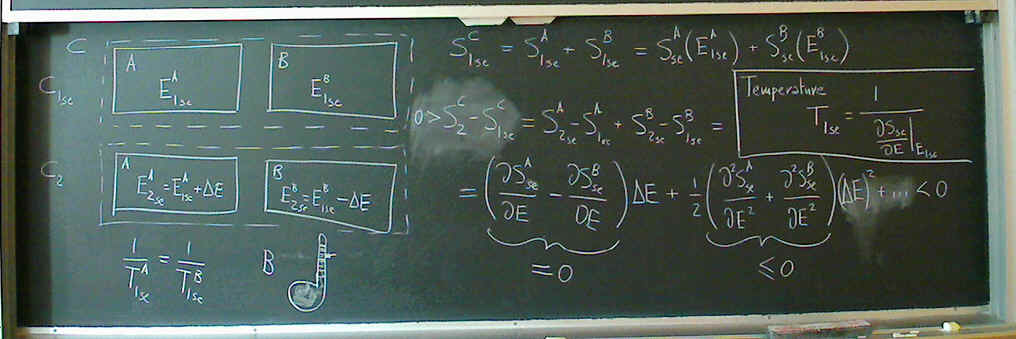 C
C_{1se}
A
E^A_{1se}
B
E^B_{1se}
C_2
A
E^A_{2se} = E^A_{1se} + ΔE
B
E^B_{2se} = E^B_{1se} − ΔE
1/T^A_{1se} = 1/T^B_{1se}
B
S^C_{1se} = S^A_{1se} + S^B_{1se} = S^A_{se}(E^A_{1se}) + S^B_{se}(E^B_{1se})
0 > S^C_2 − S^C_{1se} = S^A_{2se} − S^A_{1se} + S^B_{2se} − S^B_{1se} =
Temperature
T_{1se} = 1/(∂S_{se}/∂E |_{E_{1se}})
= (∂S^A_{se}/∂E − ∂S^B_{se}/∂E) ΔE + 1/2 (∂²S^A_{se}/∂E² + ∂²S^B_{se}/∂E²) (ΔE)² + ... < 0
= 0
≤ 0